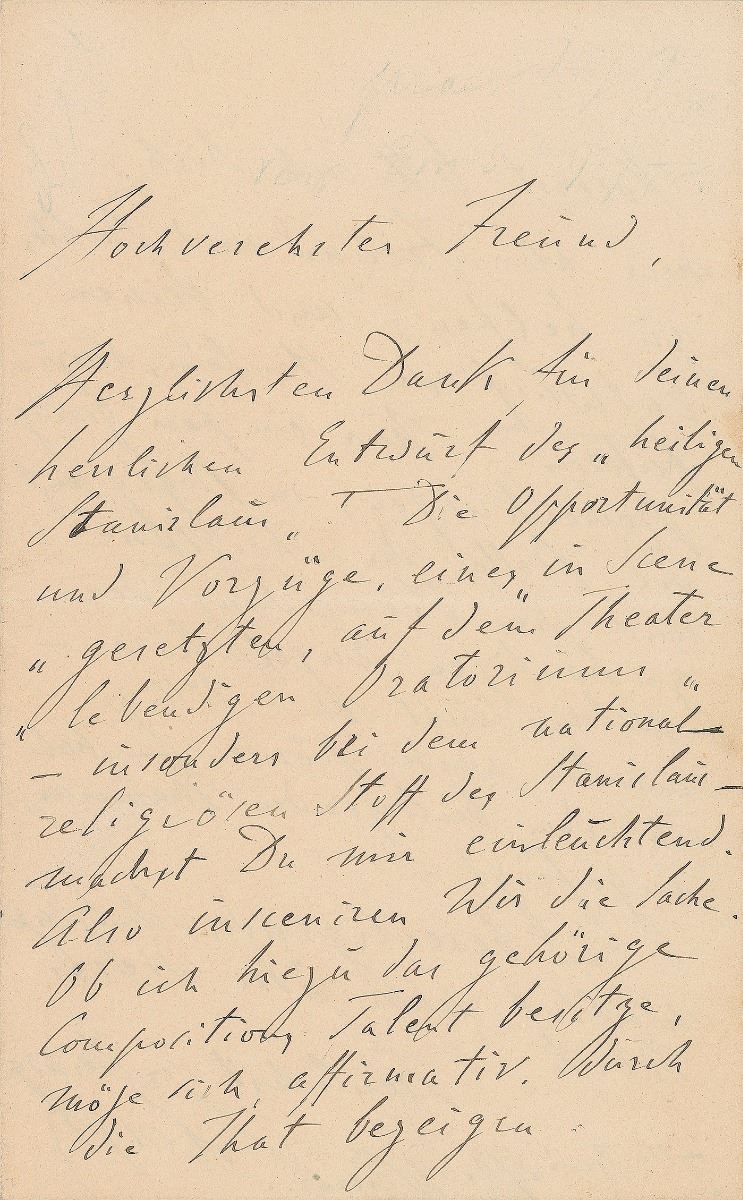 Hochverehrter Freund,
Herzlichsten Dank für deinen
herrlichen Entwurf des „heiligen
Stanislaus„! – Die Opportunität
und Vorzüge, eines „in Scene
„gesetzten, auf dem Theater
„lebendigen Oratoriums„
– insonders bei dem national
religiösen Stoff des Stanislaus –
machst Du mir einleuchtend.
Also insceniren Wir die Sache.
Ob ich hiezu das gehörige
Compositions Talent besitze,
möge sich, affirmativ, durch
die That bezeigen.